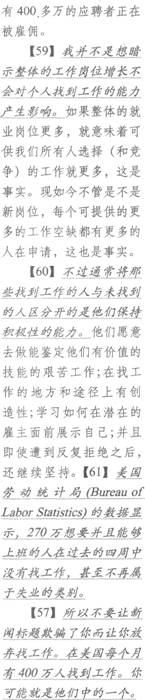 有 400 多万的应聘者正在
被雇佣。
【59】我并不是想暗
示整体的工作岗位增长不
会对个人找到工作的能力
产生影响。如果整体的就
业岗位更多，就意味着可
供我们所有人选择（和竞
争）的工作就更多，这是
事实。现如今不管是不是
新岗位，每个可提供的更
多的工作空缺都有更多的
人在申请，这也是事实。
【60】不过通常将那
些找到工作的人与未找到
的人区分开的是他们保持
积极性的能力。他们愿意
去做能鉴定他们有价值的
技能的艰苦工作；在找工
作的地方和途径上有创
造性；学习如何在潜在的
雇主面前展示自己；并且
即使遭到反复拒绝之后，
还继续坚持。【61】美国
劳动统计局(Bureau of
Labor Statistics) 的数据显
示，270 万想要并且能够
上班的人在过去的四周中
没有找工作，甚至不再属
于失业的类别。
【57】所以不要让新
闻标题欺骗了你而让你放
弃找工作。在美国每个月
有 400 万人找到工作。你
可能就是他们中的一个。